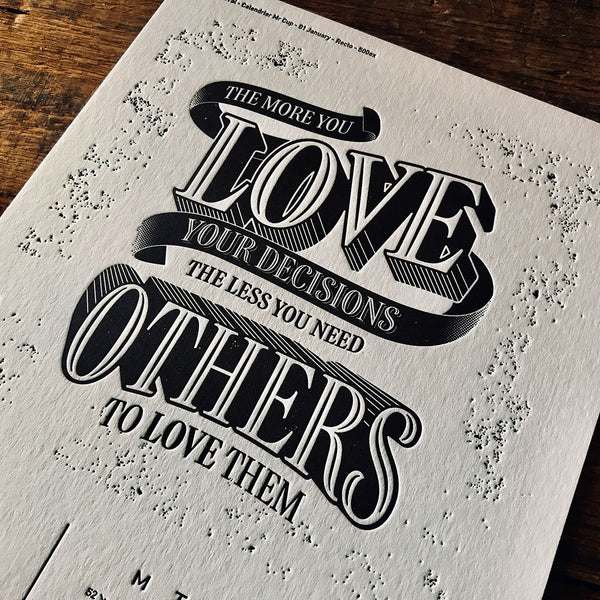 Calendrier Mr Cup - 01 January - Recto - 500ex
THE MORE YOU
LOVE
YOUR DECISIONS
THE LESS YOU NEED
OTHERS
TO LOVE THEM
M T
52